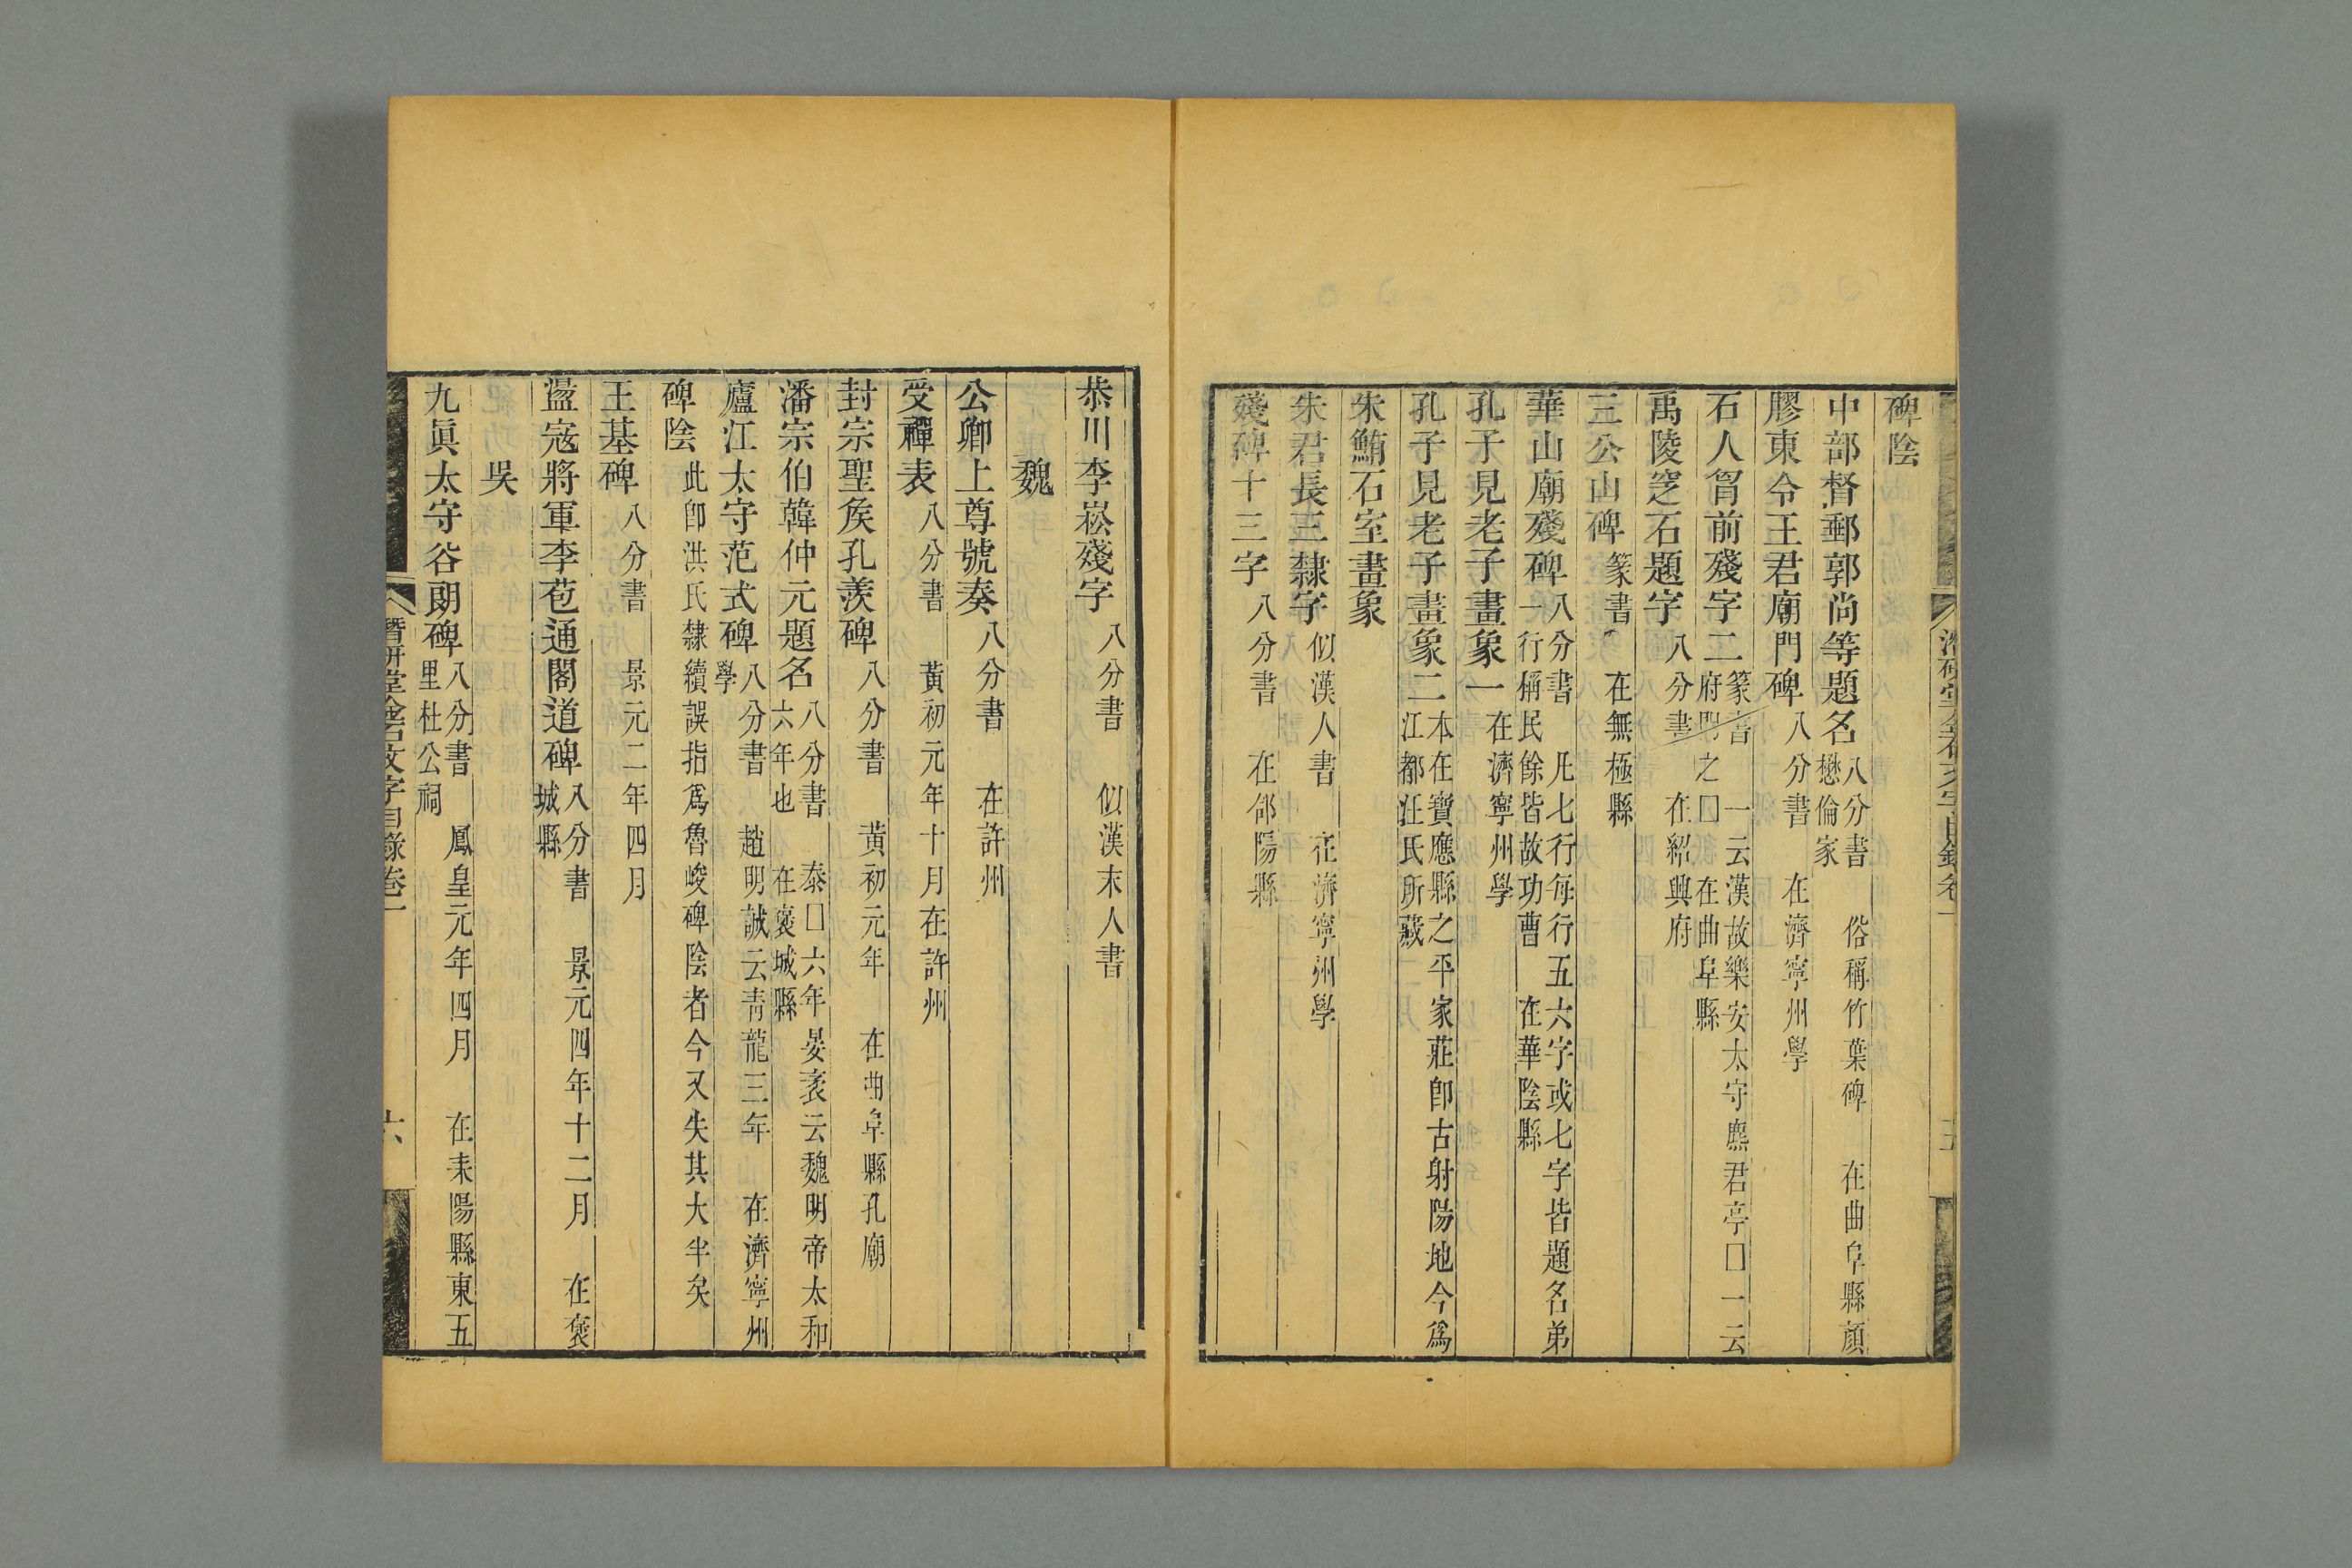 碑陰
中部督郵郭尚等題名八分書　俗稱竹葉碑　在曲阜縣顏
懋倫家
膠東令王君廟門碑八分書　在濟寧州學
石人胷前殘字二篆書　一云漢故樂安太守麃君亭囗一云
府門之囗　在曲阜縣
禹陵窆石題字八分書　在紹興府
三公山碑篆書　在無極縣
華山廟殘碑八分書　凡七行每行五六字或七字皆題名弟
一行稱民餘皆故功曹　在華陰縣
孔子見老子畫象一　在濟寧州學
孔子見老子畫象二本在寶應縣之平家莊卽古射陽地今爲
江都汪氏所藏
朱鮪石室畫象
朱君長三隸字　似漢人書　在濟寧州學
殘碑十三字　八分書　在郃陽縣
潛研堂金石文字目錄卷一　五
恭川李崧殘字　八分書　似漢末人書
魏
公卿上尊號奏八分書　在許州
受禪表　八分書　黃初元年十月在許州
封宗聖矦孔羨碑　八分書　黃初元年　在曲阜縣孔廟
潘宗伯韓仲元題名八分書　泰囗六年晏袤云魏明帝太和
六年也　在襃城縣
廬江太守范式碑八分書　趙明誠云靑龍三年　在濟寧州
學
碑陰　此卽洪氏隸續誤指爲魯峻碑陰者今又失其大半矣
王基碑　八分書　景元二年四月
盪寇將軍李苞通閣道碑八分書　景元四年十二月　在襃
城縣
吳
九眞太守谷朗碑八分書　鳳皇元年四月　在耒陽縣東五
里杜公祠
潛硏堂金石文字目錄卷一　六